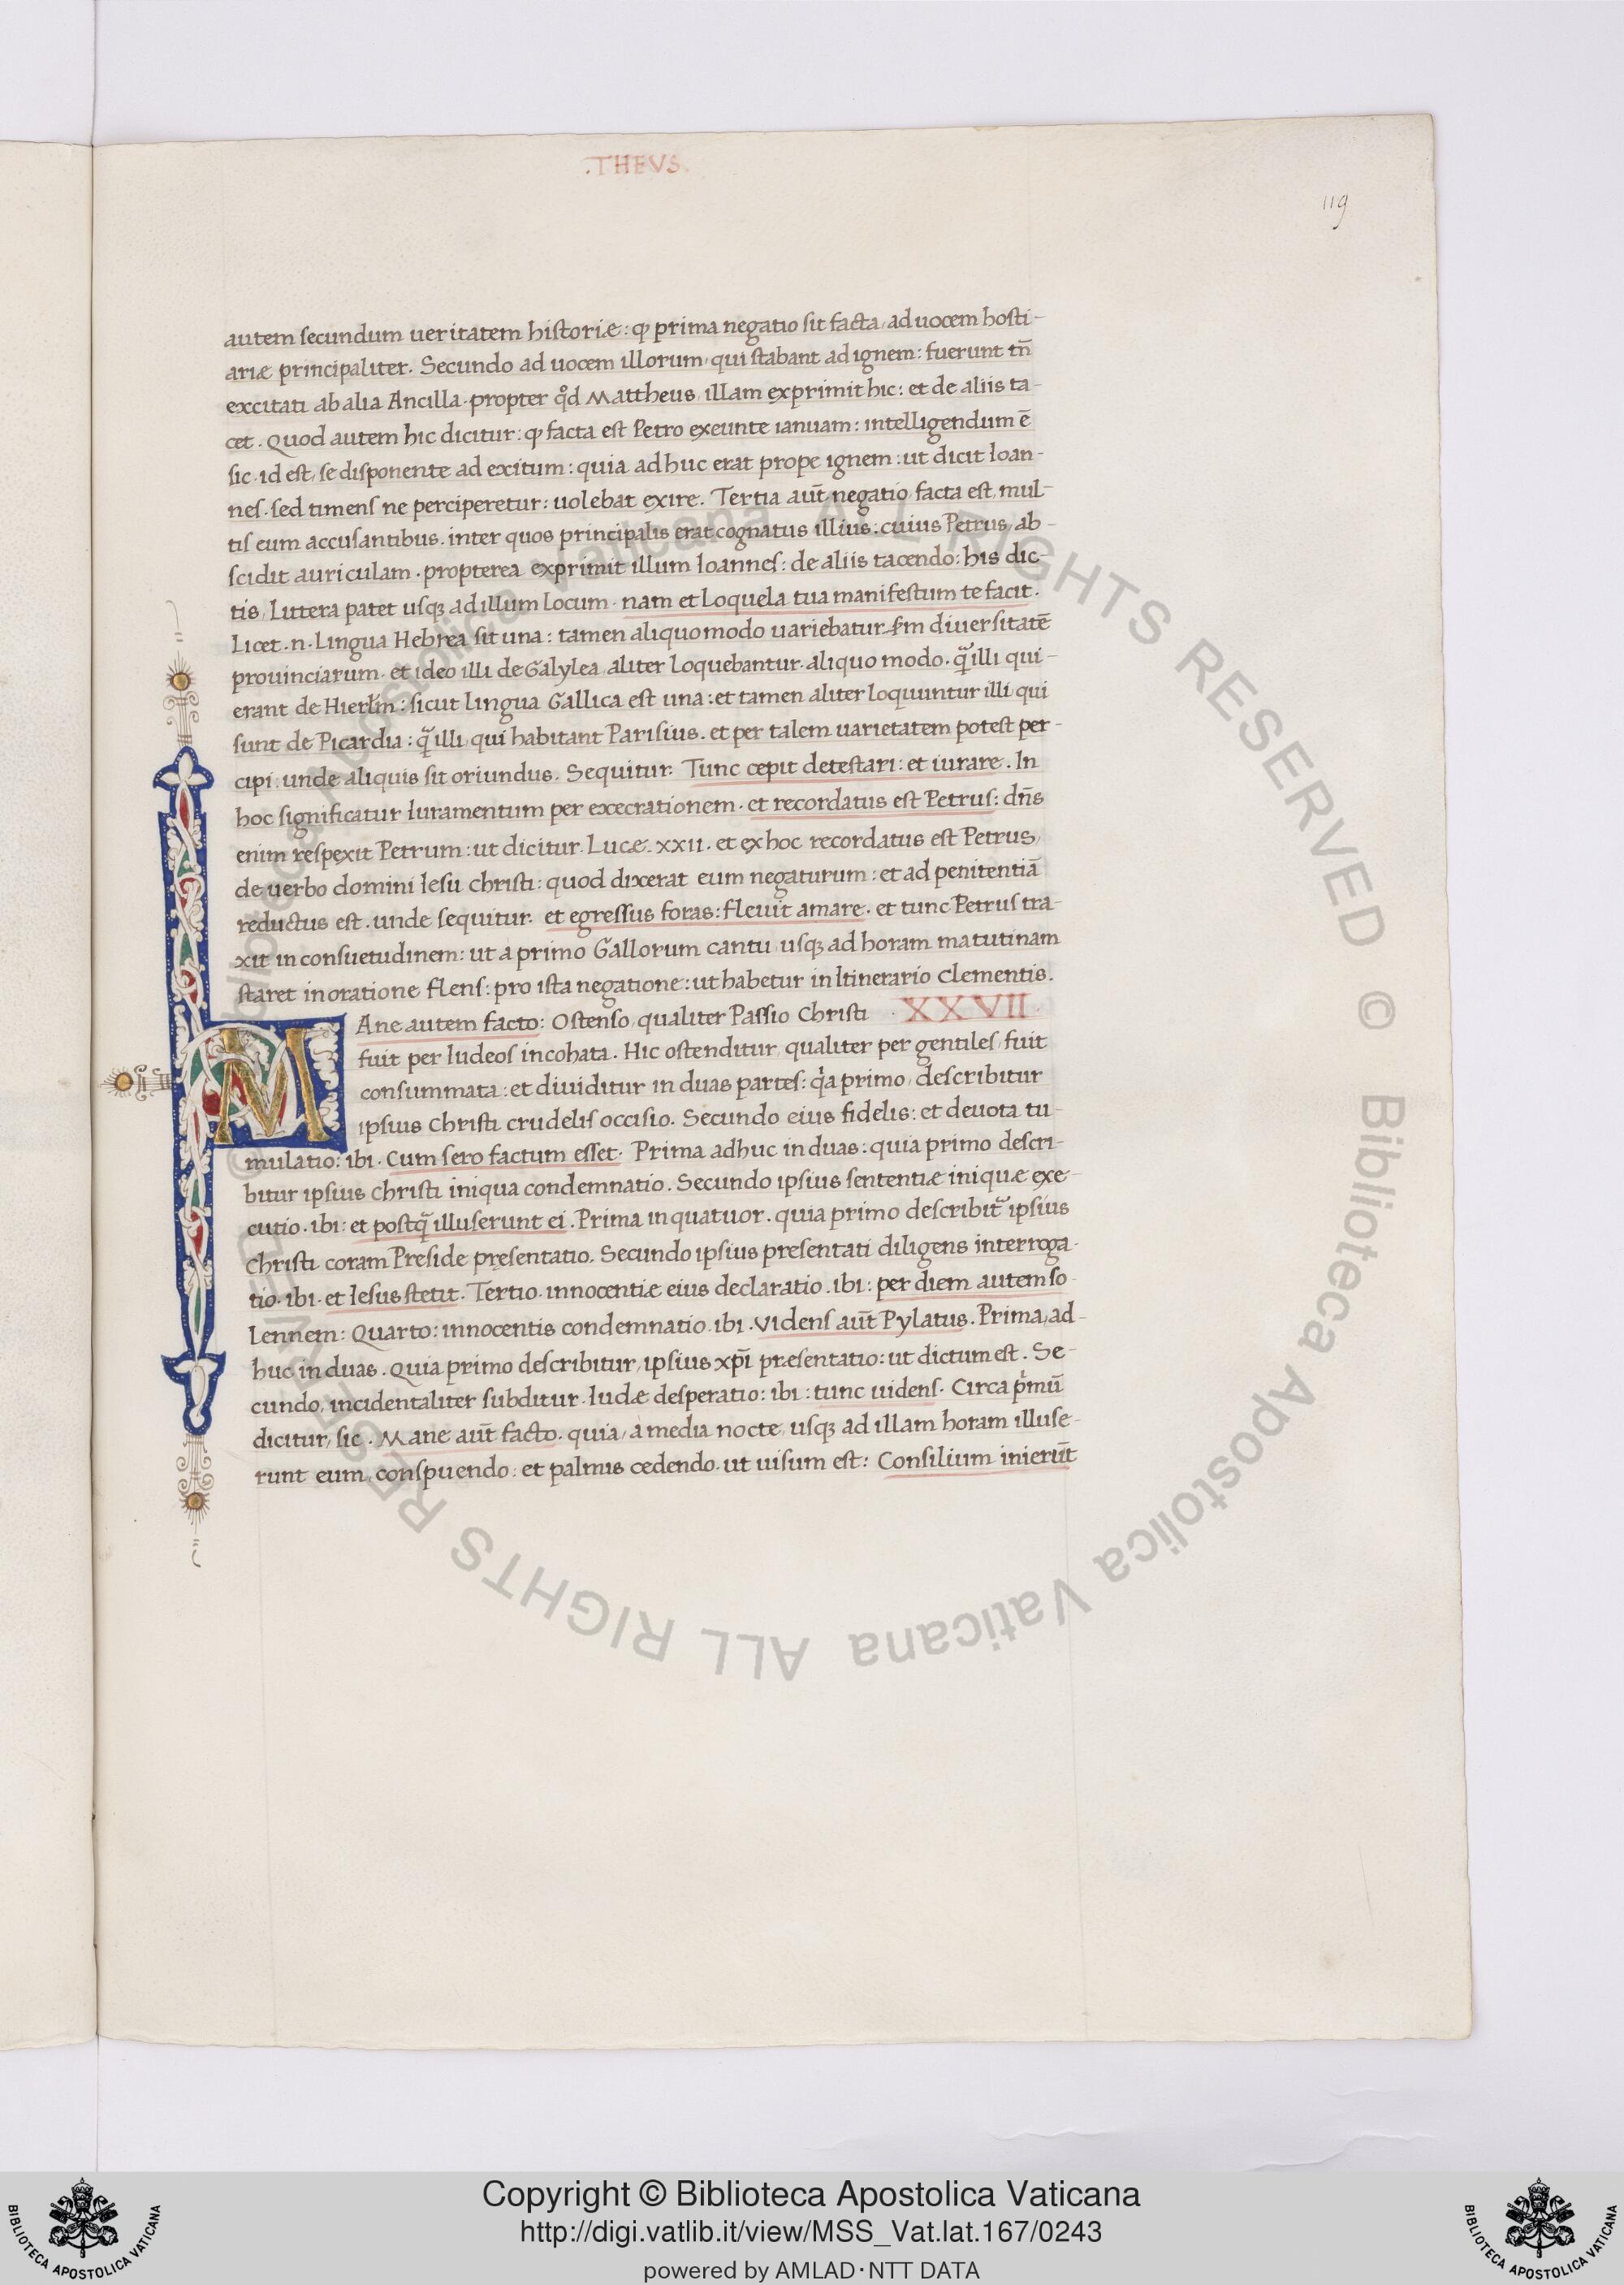 .THEVS.
119
autem secundum ueritatem historiæ: ꝙ prima negatio sit facta, ad uocem hosti-
ariæ principaliter. Secundo ad uocem illorum, qui stabant ad ignem: fuerunt tñ
excitati ab alia Ancilla. propter qd̊ Mattheus, illam exprimit hic: et de aliis ta-
cet. Quod autem hic dicitur: ꝙ facta est Petro exeunte ianuam: intelligendum ē
sic. id est, se disponente ad exitum: quia adhuc erat prope ignem: ut dicit Ioan-
nes. sed timens ne perciperetur: uolebat exire. Tertia aut̄ negatio, facta est, mul-
tis eum accusantibus. inter quos principalis erat cognatus illius: cuius Petrus, ab-
scidit auriculam. propterea exprimit illum Ioannes: de aliis tacendo: his dic-
tis, Littera patet usqꝫ ad illum locum. nam et loquela tua manifestum te facit.
Licet .n. Lingua Hebrea sit una: tamen aliquo modo uariebatur, ẜm diuersitatē
prouinciarum. et ideo illi de Galylea, aliter loquebantur. aliquo modo. q̃ illi qui-
erant de Hierlm̄: sicut lingua Gallica est una: et tamen aliter loquuntur illi qui
sunt de Picardia: q̃ illi, qui habitant Parisius. et per talem uarietatem potest per-
cipi: unde aliquis sit oriundus. Sequitur. Tunc cepit detestari: et iurare. In
hoc significatur Iuramentum per execrationem. et recordatus est Petrus: dñs
enim respexit Petrum: ut dicitur. Lucæ. XXII. et ex hoc recordatus est Petrus,
de uerbo domini Iesu Christi: quod dixerat eum negaturum: et ad penitentiā
reductus est. unde sequitur. et egressus foras: fleuit amare. et tunc Petrus tra-
xit in consuetudinem: ut a primo Gallorum cantu, usqꝫ ad horam matutinam
staret in oratione flens: pro ista negatione: ut habetur in Itinerario Clementis.
MAne autem facto: Ostenso, qualiter Passio Christi . XXVII.
fuit per Iudeos incohata. Hic ostenditur, qualiter per gentiles, fuit
consummata: et diuiditur in duas partes: qa primo, describitur
ipsius Christi crudelis occisio. Secundo eius fidelis: et deuota tu-
mulatio: ibi. Cum sero factum esset. Prima adhuc in duas: quia primo descri-
bitur ipsius Christi iniqua condemnatio. Secundo ipsius sententiæ iniquæ exe-
cutio. ibi: et postq̃ illuserunt ei. Prima in quatuor. quia primo describit᷑ ipsius
Christi coram Preside pręsentatio. Secundo ipsius presentati diligens interroga-
tio. ibi. et Iesus stetit. Tertio. innocentiæ eius declaratio. ibi: per diem autem so-
lennem: Quarto: innocentis condemnatio. ibi. Videns aut̄ Pylatus. Prima, ad-
huc in duas. Quia primo describitur, ipsius xp̄i pręsentatio: ut dictum est. Se-
cundo, incidentaliter subditur. Iudæ desperatio: ibi: tunc uidens. Circa pmū
dicitur, sic. Mane aut̄ facto. quia, a media nocte, usqꝫ ad illam horam illuse-
runt eum, conspuendo: et palmis cedendo. ut uisum est: Consilium inierūt
© Biblioteca Apostolica Vaticana ALL RIGHTS RESERVED © Biblioteca Apostolica Vaticana ALL RIGHTS RESERVED
BIBLIOTECA APOSTOLICA VATICANA
Copyright © Biblioteca Apostolica Vaticana
http://digi.vatlib.it/view/MSS_Vat.lat.167/0243
powered by AMLAD·NTT DATA
BIBLIOTECA APOSTOLICA VATICANA